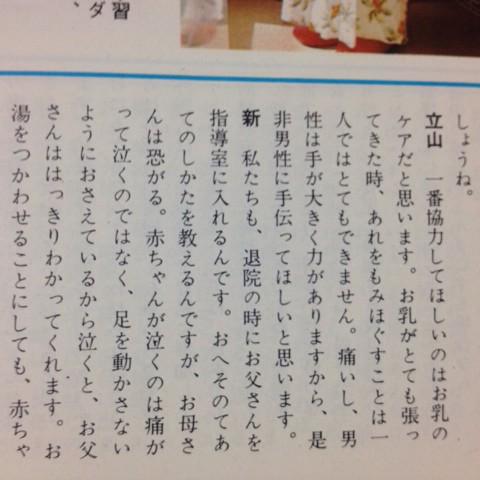 習
ダ
、
しょうね。
立山　一番協力してほしいのはお乳の
ケアだと思います。お乳がとても張っ
てきた時、あれをもみほぐすことは一
人ではとてもできません。痛いし、男
性は手が大きく力がありますから、是
非男性に手伝ってほしいと思います。
新　私たちも、退院の時にお父さんを
指導室に入れるんです。おへそのてあ
てのしかたを教えるんですが、お母さ
んは恐がる。赤ちゃんが泣くのは痛が
って泣くのではなく、足を動かさない
ようにおさえているから泣くと、お父
さんははっきりわかってくれます。お
湯をつかわせることにしても、赤ちゃ